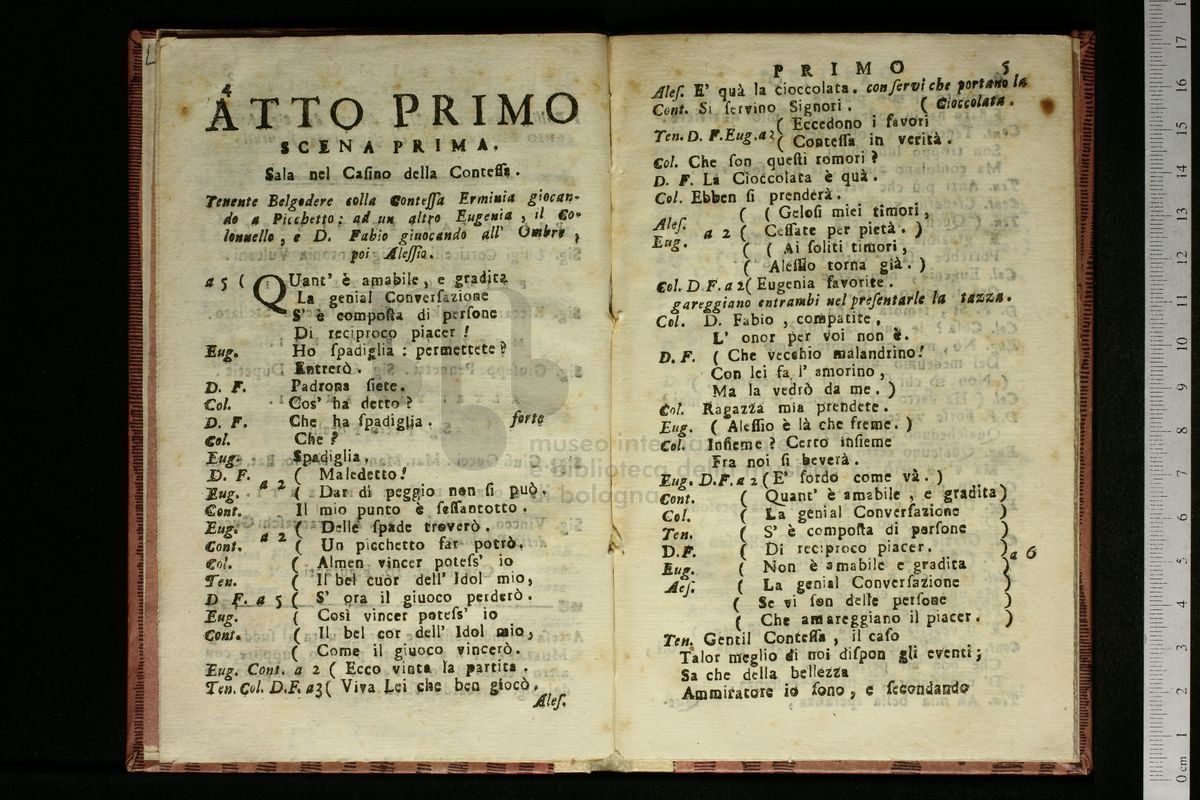 4
ATTO PRIMO
SCENA PRIMA.
Sala nel Casino della Contessa.
Tenente Belgodere colla Contessa Erminia giocan-
do a Picchetto; ad un altro Eugenia, il Co-
lonnello, e D. Fabio giuocando all' Ombre,
poi Alessio.
a 5 ( QUant' è amabile, e gradita
La genial Conversazione
S' è composta di persone
Di reciproco piacer!
Eug. Ho spadiglia: permettete?
Entrerò.
D. F. Padrona siete.
Col. Cos' ha detto?
D. F. Che ha spadiglia. forte
Col. Che?
Eug. Spadiglia.
D. F. ( Maledetto!
Eug. a 2 ( Dar di peggio non si può.
Cont. Il mio punto è sessantotto.
Eug. ( Delle spade troverò.
Cont. a 2 ( Un picchetto far potrò.
Col. ( Almen vincer potess' io
Ten. ( Il bel cuor dell' Idol mio,
D F. a 5 ( S' ora il giuoco perderò.
Eug. ( Così vincer potess' io
Cont. ( Il bel cor dell' Idol mio,
( Come il giuoco vincerò.
Eug. Cont. a 2 ( Ecco vinta la partita.
Ten. Col. D.F. a3 ( Viva Lei che ben giocò.
Ales.
PRIMO 5
Ales. E' quà la cioccolata. con servi che portano la
Cont. Si servino Signori. ( Cioccolata.
Ten. D. F. Eug. a 3 ( Eccedono i favori
( Contessa in verità.
Col. Che son questi romori?
D. F. La Cioccolata è quà.
Col. Ebben si prenderà.
( ( Gelosi miei timori,
Ales. a 2 ( Cessate per pietà. )
Eug. ( ( Ai soliti timori,
( Alessio torna già. )
Col. D F. a 2 ( Eugenia favorite.
gareggiano entrambi nel presentarle la tazza.
Col. D. Fabio, compatite,
L' onor per voi non è.
D. F. ( Che vecchio malandrino!
Con lei fa l' amorino,
Ma la vedrò da me. )
Col. Ragazza mia prendete.
Eug. ( Alessio è là che freme. )
Col. Insieme? Certo insieme
Fra noi si beverà.
Eug. D.F. a 2 (E' sordo come và. )
Cont. ( Quant' è amabile, e gradita)
Col. ( La genial Conversazione )
Ten. ( S' è composta di persone )
D.F. ( Di reciproco piacer. ) a 6
Eug. ( Non è amabile e gradita )
Aes. ( La genial Conversazione )
( Se vi son delle persone )
( Che amareggiano il piacer. )
Ten. Gentil Contessa, il caso
Talor meglio di noi dispon gli eventi;
Sa che della bellezza
Ammiratore io sono, e secondando
museo internazionale
e biblioteca della musica
di bologna